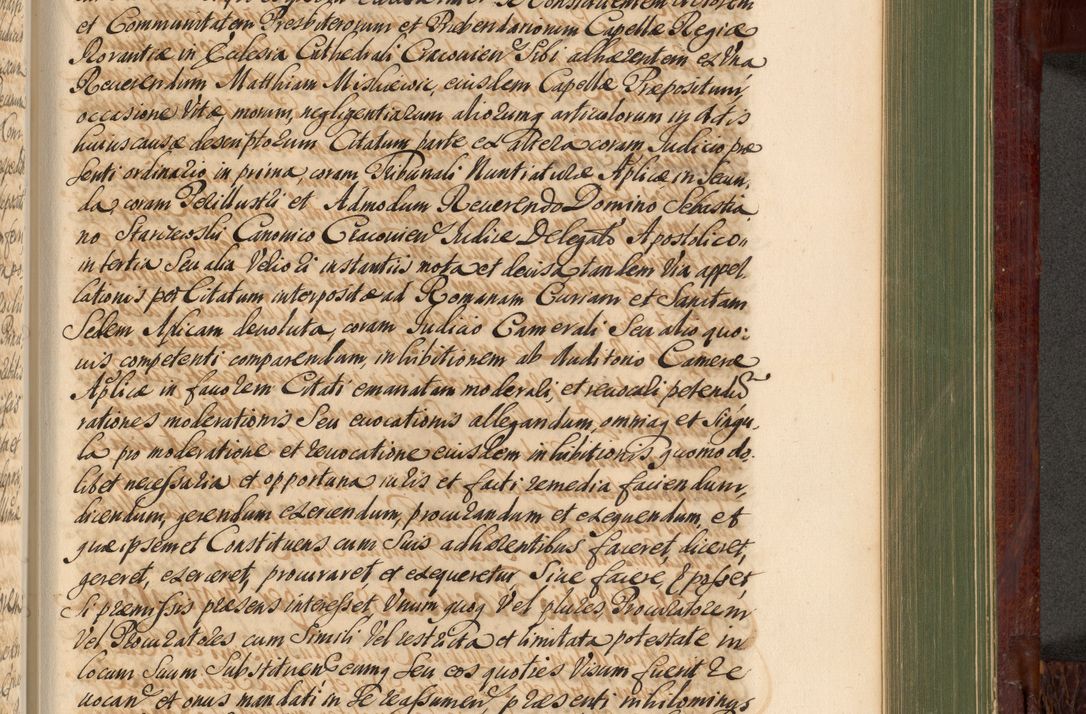 et Communitatem Presbiterorum et Prebendariorum Capellæ Regiæ
Rorantiæ in Ecclesia Cathedrali Cracovien Sibi adhærentem ex Una
Reuerendum Matthiam Miskiewic, eiusdem Capellæ Præpositum
occasione Vitæ, morum, negligentiarum aliorumq articulorum in Actis
huius causæ descriptorum Citatum parte ex altera coram Iudicio præ
senti ordinario in prima, coram Tribunali Nuntiaturæ Aplicæ in Secun
da, coram Perillustri et Admodum Reuerendo Domino Sebastia
no Starzewski Canonico Cracovien Iudice Delegato Apostolico
in tertia Seu alia Veriori instantiis mota et decisa tandem Via appel
lationis per Citatum interpositæ ad Romanam Curiam et Sanctam
Sedem Aplicam devoluta, coram Iudicio Camerali Seu alio quo:
vis competenti comparendum, inhibitionem ab Auditorio Cameræ
Aplicæ in favorem Citati emanatam moderali, et revocali petendu
rationes moderationis Seu evocationis allegandum, omniaq et Singu,
la pro moderatione et revocatione eiusdem inhibitionis quomodo,
libet necessaria et opportuna iuris et facti remedia faciendum,
dicendum, gerendum exercendum, procurandum et exequendum, et
quæ ipsemet Constituens cum Suis adhærentibus faceret, diceret,
gereret, exerceret, procuraret et exequeretur, Sive facere posset
Si præmissis præsens interesset, Unum quoq Vel plures Procuratorem
Vel Procuratores cum Simili Vel restricta et limitata potestate in
locum Suum Substituen eumq Seu eos quoties Visum fuerit re
vocan et onus mandati in Se reassumen, præsenti nihilominus